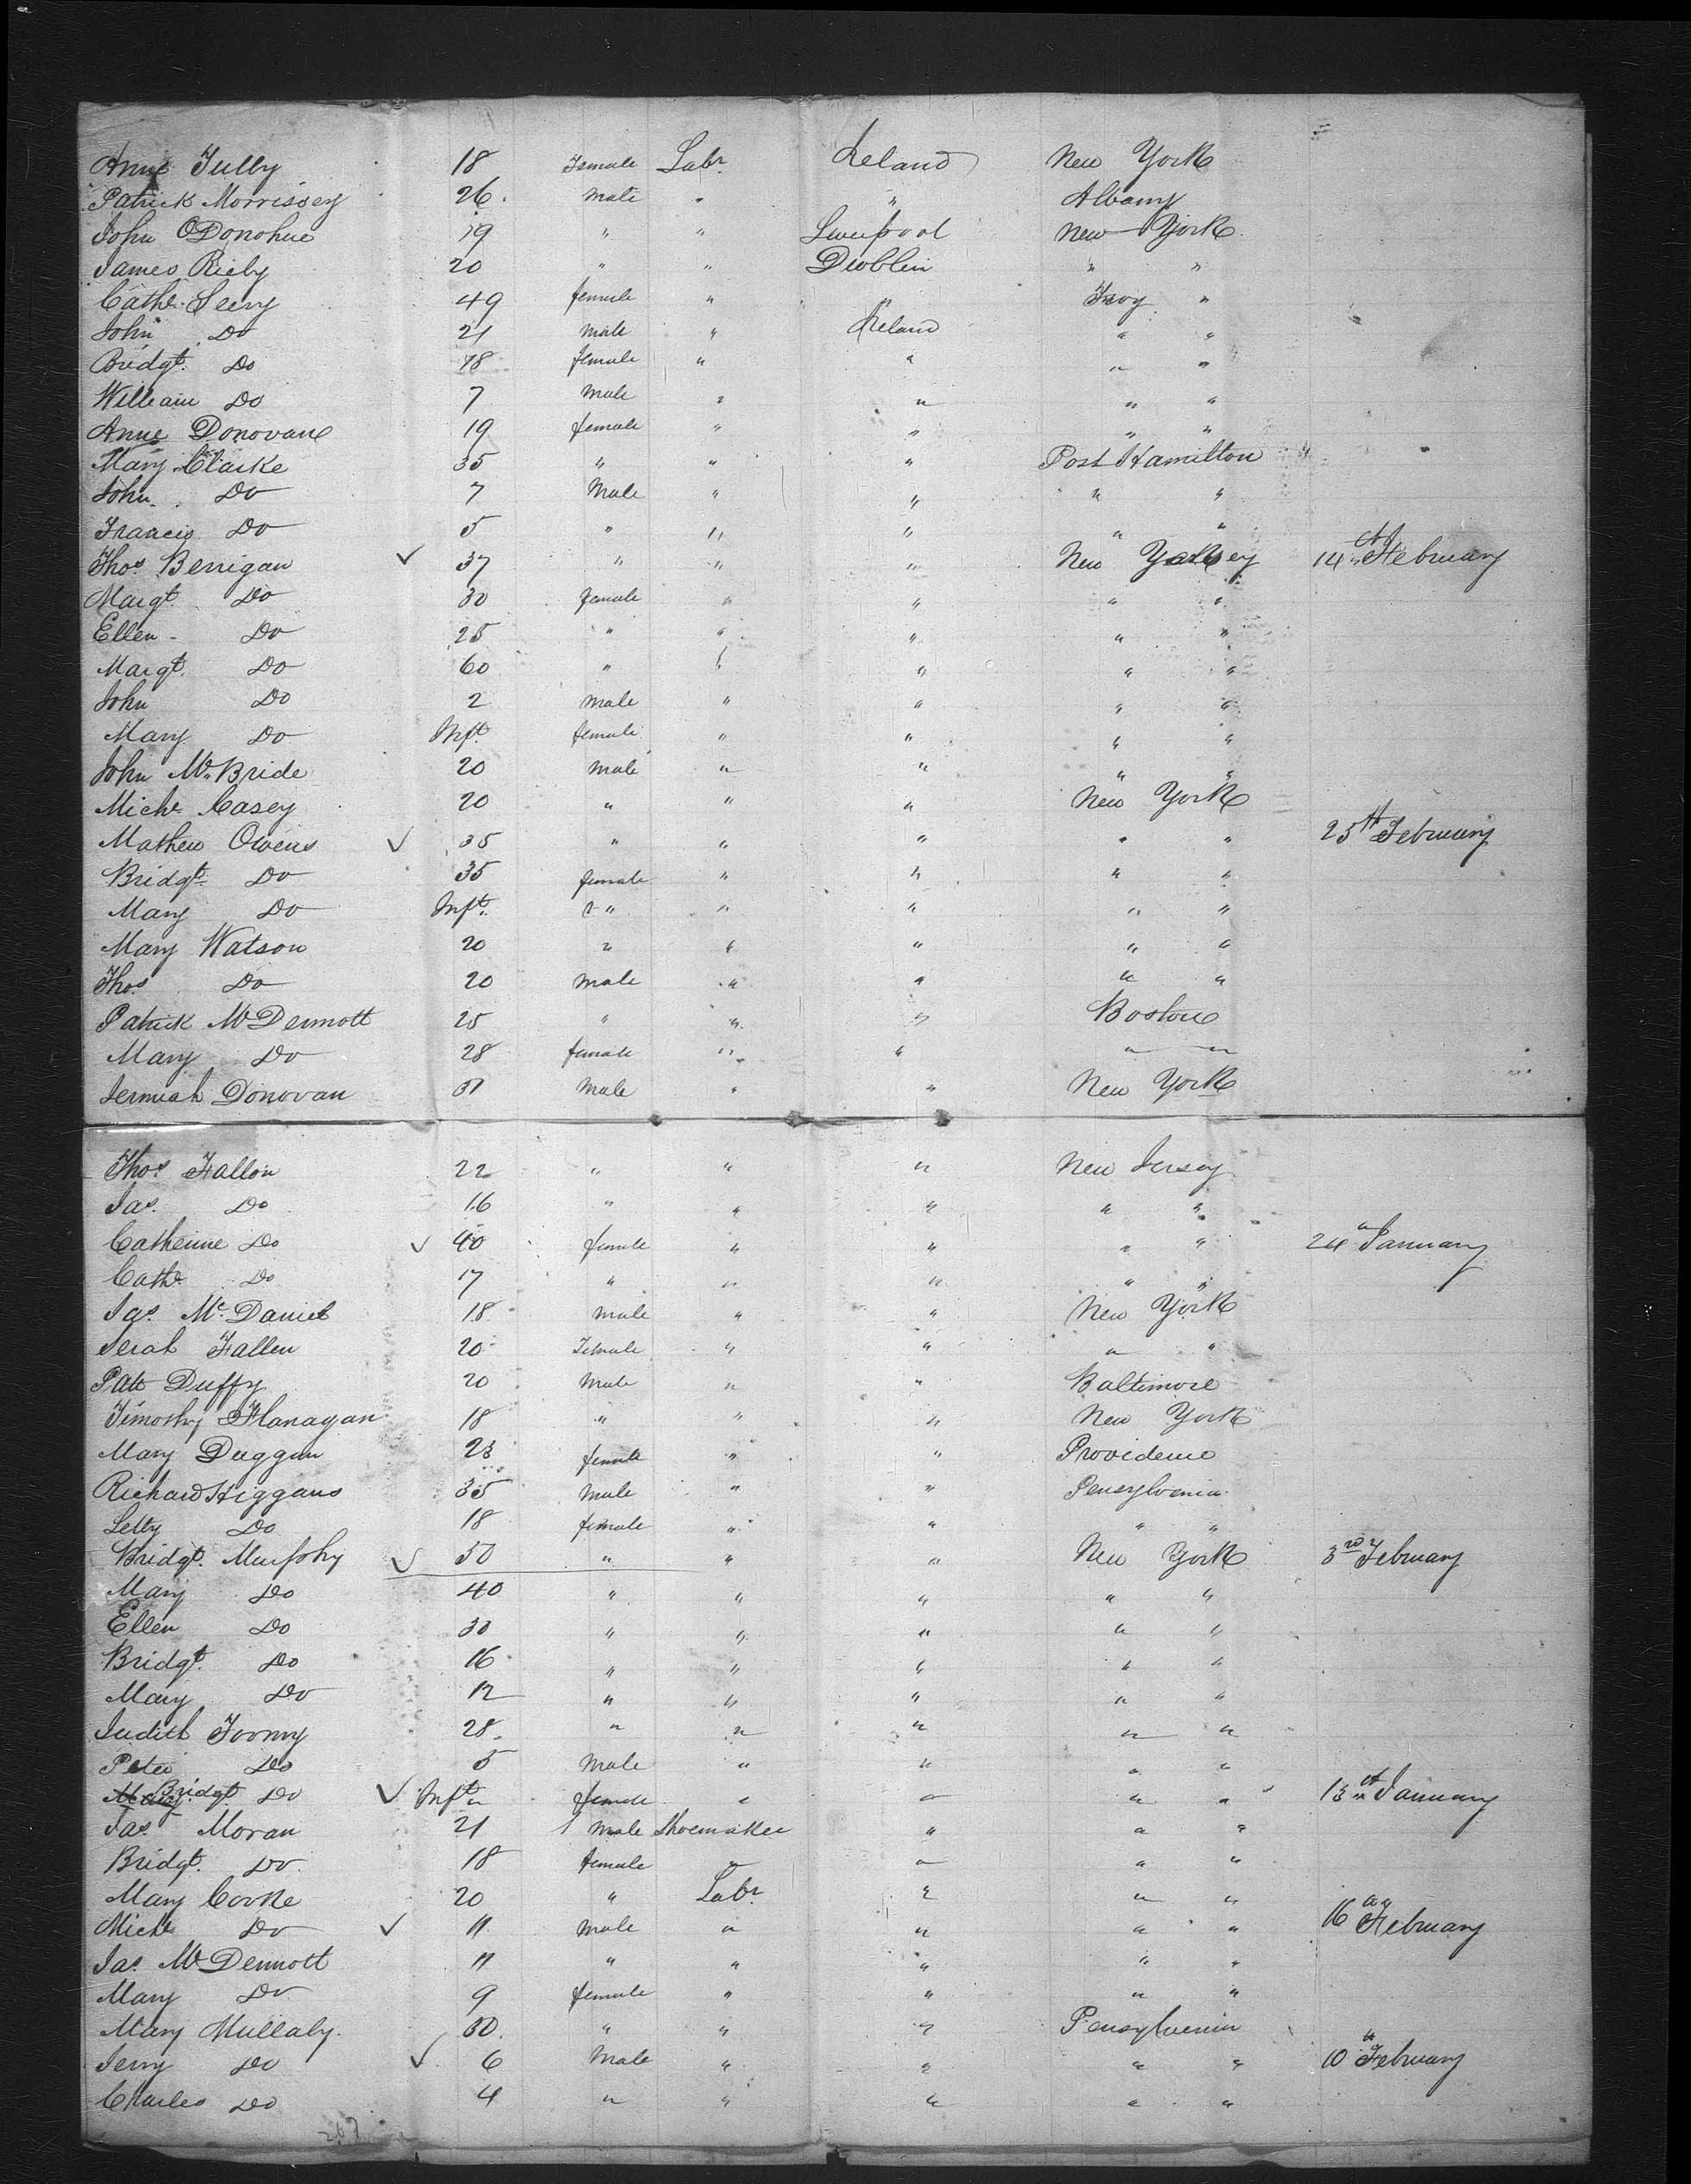 Anne Tully 18 Female Labr. Ireland New York
Patrick Morrissey 26. Male " " Albany
John O'Donohue 19 " " Liverpool New York
James Riely 20 " " Dublin " "
Cathe. Leery 49 female " " Troy "
John Do 21 Male " Ireland " "
Bridgt. Do 18 female " " " "
William Do 7 Male " " " "
Anne Donovan 19 female " " " "
Mary Clarke 35 " " " Post Hamilton
John Do 7 Male " " " "
Francis Do 5 " " " " "
Thos. Berrigan ✓ 37 " " " New 14th February
Margt. Do 30 female " " " "
Ellen - Do 25 " " " " "
Margt. Do 60 " " " " "
John Do 2 Male " " " "
Mary Do Inft. female " " " "
John McBride 20 Male " " " "
Michl. Casey 20 " " " New York
Mathew Owens ✓ 35 " " " " " 25th February
Bridgt. Do 35 female " " " "
Mary Do Inft. " " " " "
Mary Watson 20 " " " " "
Thos. Do 20 Male " " " "
Patrick McDermott 25 " " " Boston
Mary Do 28 female " " " "
Jermiah Donovan Male " " New York
Thos. Fallon 22 " " " New Jersey
Jas. Do 16 " " " " "
Catherine Do ✓ 40 female " " " " 24 January
Cathe. Do 17 " " " " "
Jas. McDaniel 18 Male " " New York
Serah Fallen 20 Female " " " "
Patt Duffy 20 Male " " Baltimore
Timothy Flanagan 18 " " " New York
Mary Duggan 23 female " " Providence
Richard Higgans 35 Male " " Pensylvania
Letty Do 18 female " " " "
Bridgt. Murphy ✓ 50 " " " New York 3rd February
Mary Do 40 " " " " "
Ellen Do 30 " " " " "
Bridgt. Do 16 " " " " "
Mary Do 12 " " " " "
Judith Toomy 28. " " " " "
Peter Do 5 Male " " " "
Mary Bridgt Do ✓ Inft. female " " " " 13th January
Jas. Moran 21 Male Shoemaker " " "
Bridgt. Do. 18 female " " " "
Mary Cooke 20 " Labr. " " "
Michl. Do ✓ 11 Male " " " " 16 February
Jas. McDermott 11 " " " " "
Mary Do 9 female " " " "
Mary Mullaly. 30. " " " Pensylvenia
Jerry Do ✓ 6 Male " " " " 10th February
Charles Do 4 " " " " "